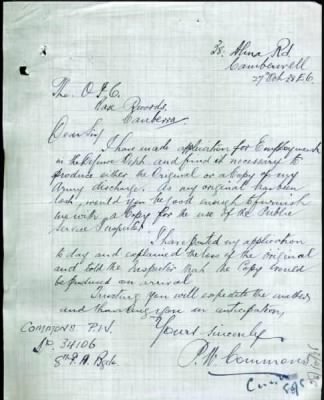 38 Alma Rd
Camberwell
27 Feb. 38 E.6.
The O.I.C.
Base Records,
Canberra
Dear Sir,
I have made application for Employment
in the Defence Dept. and find it necessary to
produce either the Original or a Copy of my
Army discharge. As my original has been
lost, would you be good enough to furnish
me with a Copy for the use of the Public
Service Inspector.
I have posted my application
to day and explained the loss of the original
and told the Inspector that the Copy would
be produced on arrival
Trusting you will expedite the matter
and thanking you in anticipation,
Yours Sincerely
P. W. Commons
COMMONS. P.W.
No. 34106
8th F.A. Bgde.